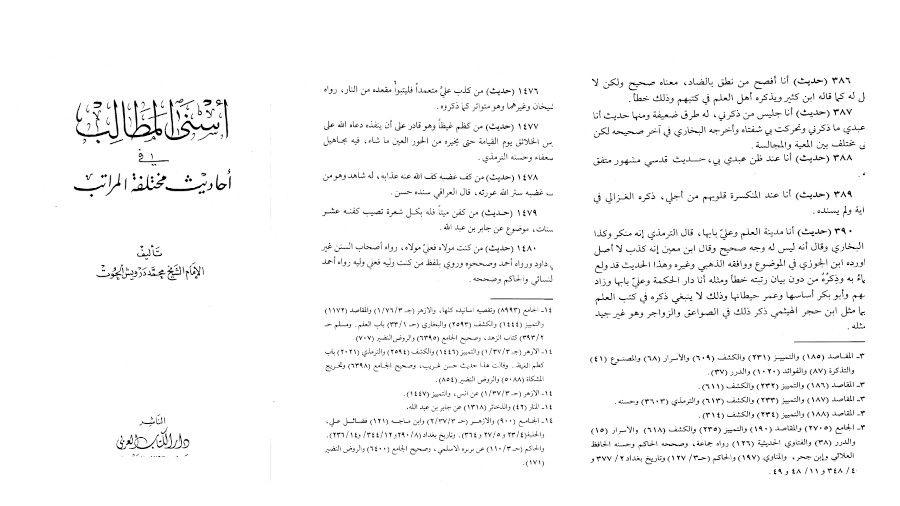 ٣٨٦ (حديث) أنا أفصح من نطق بالضاد، معناه صحيح ولكن لا
لى له كما قاله ابن كثير ويذكره أهل العلم في كتبهم وذلك خطأ.
٣٨٧ (حديث) أنا جليس من ذكرني، له طرق ضعيفة ومنها حديث أنا
عبدي ما ذكرني وتحركت بي شفتاه وأخرجه البخاري في آخر صحيحه لكن
نى مختلف بين المعية والمجالسة.
٣٨٨ (حديث) أنا عند ظن عبدي بي، حديث قدسي مشهور متفق
٣٨٩ (حديث) أنا عند المنكسرة قلوبهم من أجلي، ذكره الغزالي في
اية ولم يسنده.
٣٩٠ (حديث) أنا مدينة العلم وعليّ بابها، قال الترمذي إنه منكر وكذا
البخاري وقال أنه ليس له وجه صحيح وقال ابن معين إنه كذب لا أصل
اورده ابن الجوزي في الموضوع ووافقه الذهبي وغيره وهذا الحديث قد ولع
ماءُ به وذِكرُهُ من دون بيان رتبته خطأ ومثله أنا دار الحكمة وعليّ بابها وزاد
بهم وأبو بكر أساسها وعمر حيطانها وذلك لا ينبغي ذكره في كتب العلم
بها مثل ابن حجر الهيثمي ذكر ذلك في الصواعق والزواجر وهو غير جيد
مثله.
٣ـ المقاصد (١٨٥) والتمييز (٢٣١) والكشف (٦٠٩) والأسرار (٦٨) والمصنوع (٤١)
والتذكرة (٨٧) والفوائد (١٠٢٠) والدرر (٣٧).
٣ـ المقاصد (١٨٦) والتمييز (٢٣٢) والكشف (٦١١).
٣ـ المقاصد (١٨٧) والتمييز (٢٣٣) والكشف (٦١٣) والترمذي (٣٦٠٣) وحسنه.
٣ـ المقاصد (١٨٨) والتمييز (٢٣٤) والكشف (٣١٤).
٣ـ الجامع (٢٧٠٥) والمقاصد (١٩٠) والتمييز (٢٣٥) والكشف (٦١٨) والأسرار (١٥)
والدرر (٣٨) والفتاوي الحديثية (١٢٦) رواه جماعة، وصححه الحاكم وحسنه الحافظ
العلائي وإبن حجر، والمناوي (١٩٧) والحاكم (جـ٣/ ١٢٧) وتاريخ بغداد ٢/ ٣٧٧ و
٤/ ٣٤٨ و ١١/ ٤٨ و ٤٩.
١٤٧٦ (حديث) من كذب عليّ متعمداً فليتبوأ مقعده من النار، رواه
شيخان وغيرهما وهو متواتر كما ذكروه.
١٤٧٧ (حديث) من كظم غيظاً وهو قادر على أن ينفذه دعاه الله على
س الخلائق يوم القيامة حتى يخيره من الحور العين ما شاء، فيه مجاهيل
سعفاء وحسنه الترمذي.
١٤٧٨ (حديث) من كف غضبه كف الله عنه عذابه، له شاهد وهو من
ب غضبه ستر الله عورته، قال العراقي سنده حسن.
١٤٧٩ (حديث) من كفن ميتاً فله بكل شعرة تصيب كفنه عشر
سنات، موضوع عن جابر بن عبد الله.
١٤٨٠ (حديث) من كنت مولاه فعليّ مولاه، رواه أصحاب السنن غير
ي داود ورواه أحمد وصححوه وروي بلفظ من كنت وليه فعلي وليه رواه أحمد
لنسائي والحاكم وصححه.
١٤ـ الجامع (٨٩٩٣) وتقصيه اسانيده كلها، والازهر (جـ ١/٧٦/٣) والمقاصد (١١٧٢)
والتمييز (١٤٤٤) والكشف (٢٥٩٣) والبخاري (جـ ٣٣/١) باب العلم. ومسلم جـ
٣٩٣/٢ كتاب الزهد، وصحيح الجامع (٦٣٩٥) والروض النضير (٧٠٧)
١٤ـ الازهر (جـ ١/٣٧/٣) والتمييز (١٤٤٦) والكشف (٢٥٩٤) والترمذي (٢٠٢١) باب
كظم الغيظ. وقالت هذا حديث حسن غريب، وصحيح الجامع (٦٣٩٨) وتخريج
المشكاة (٥٠٨٨) والروض النضير (٨٥٤).
١٤ـ الازهر (جـ ١/٣٧/٣) عن انس، والتمييز (١٤٤٧).
١٤ـ المنار (٤٢) والذخائر (١٣١٨) عن جابر بن عبد الله.
١٤ـ الجامع (٩٠٠) والازهر (جـ ٢/٣٧/٣) وابن ماجه (١٢١) فضائل علي،
والحلية (٢٣/٤ و ٢٧/٥ و ٣٦٤). وتاريخ بغداد (٢٩٠/٨ و ٣٤٤/١٢ و ٢٣٦/١٤).
والحاكم (جـ ١١٠/٣) عن بريرة الاسلمي، وصحيح الجامع (٦٤٠٠) والروض النضير
(١٧١)
أسنى المطالب
في
أحاديث مختلفة المراتب
تأليف
الإمام الشيخ محمد درويش الحوت
الناشر
دار الكتاب العربي